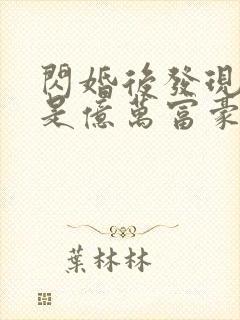 閃婚後發現
是億萬富豪
葉林林